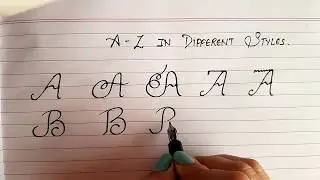 A-Z IN DIFFERENT STYLES.
A A A A A
B B P